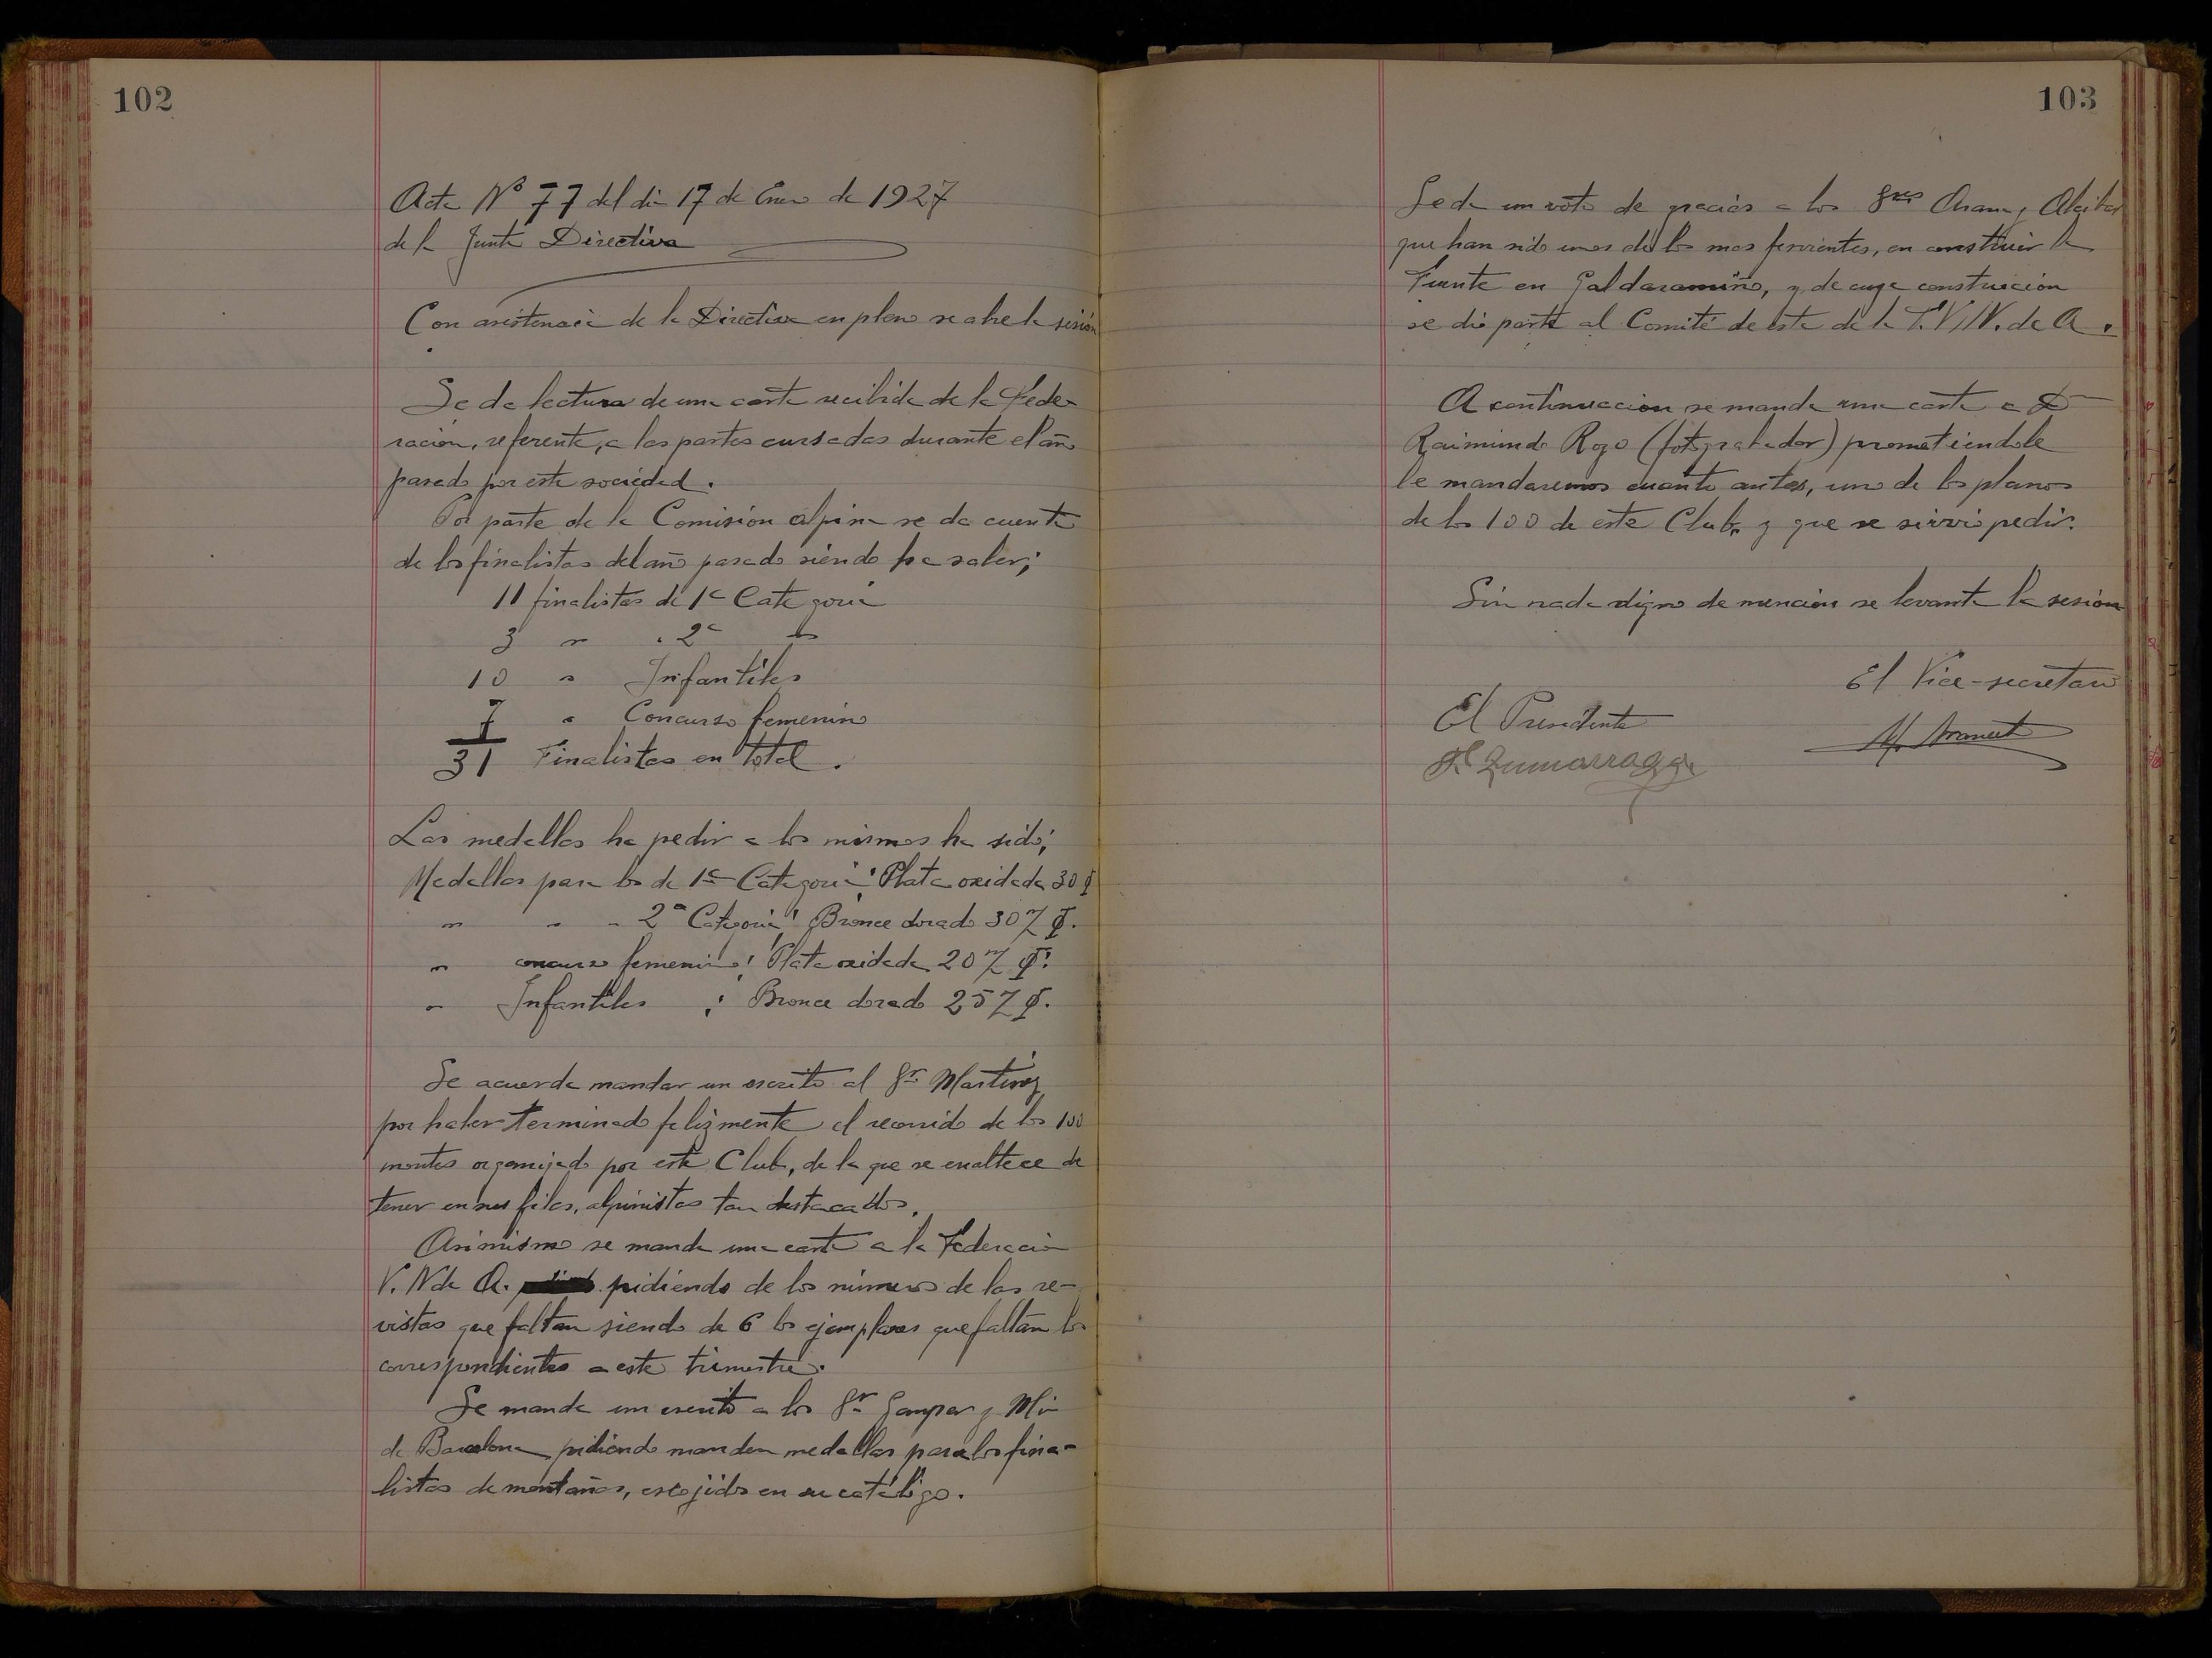 102
Acta Nº 77 del dia 17 de Enero de 1927
de la Junta Directiva
Con asistencia de la Directiva en pleno se abre la sesión
Se da lectura de una carta recibida de la Fede-
ración, referente, a los partes cursados durante el año
pasado por esta sociedad.
Por parte de la Comisión alpina se da cuenta
de los finalistas del año pasado siendo ha saber;
11 finalistas de 1ª Categoria
3 " " 2ª "
10 " Infantiles
7 " Concurso femenino
31 Finalistas en total.
Las medallas ha pedir a los mismos ha sido;
Medallas para los de 1ª Categoria: Plata oxidada 30
" " " 2ª Categoria: Bronce dorado 30
" concurso femenino: Plata oxidada 20
" Infantiles : Bronce dorado 25
Se acuerda mandar un escrito al Sr. Martinez
por haber terminado felizmente el recorrido de los 100
montes organizado por este Club, de la que se enaltece de
tener en sus filas, alpinistas tan destacados.
Asimismo se manda una carta a la Federación
V. N de A. pidiendo de los números de las re-
vistas que faltan siendo de 6 los ejemplares que faltan los
correspondientes a este trimestre.
Se manda un escrito a los Sr. y
de Barcelona pidiendo manden medallas para los fina-
listas de montañas, escojido en su catálogo.
103
Se da un voto de gracias a los Sres y
que han sido unos de los mas fervientes, en construir la
Fuente en Galdaramiño, y de cuya construcion
se dió parte al Comité de esta de la F.V.N. de A.
A continuacion se manda una carta a D
Raimundo Rojo (fotograbador) prometiendole
le mandaremos cuanto antes, uno de los planos
de los 100 de este Club, y que se sirvió pedir.
Sin nada digno de mención se levanta la sesión
El Vice-secretario
El Presidente
Zumarraga